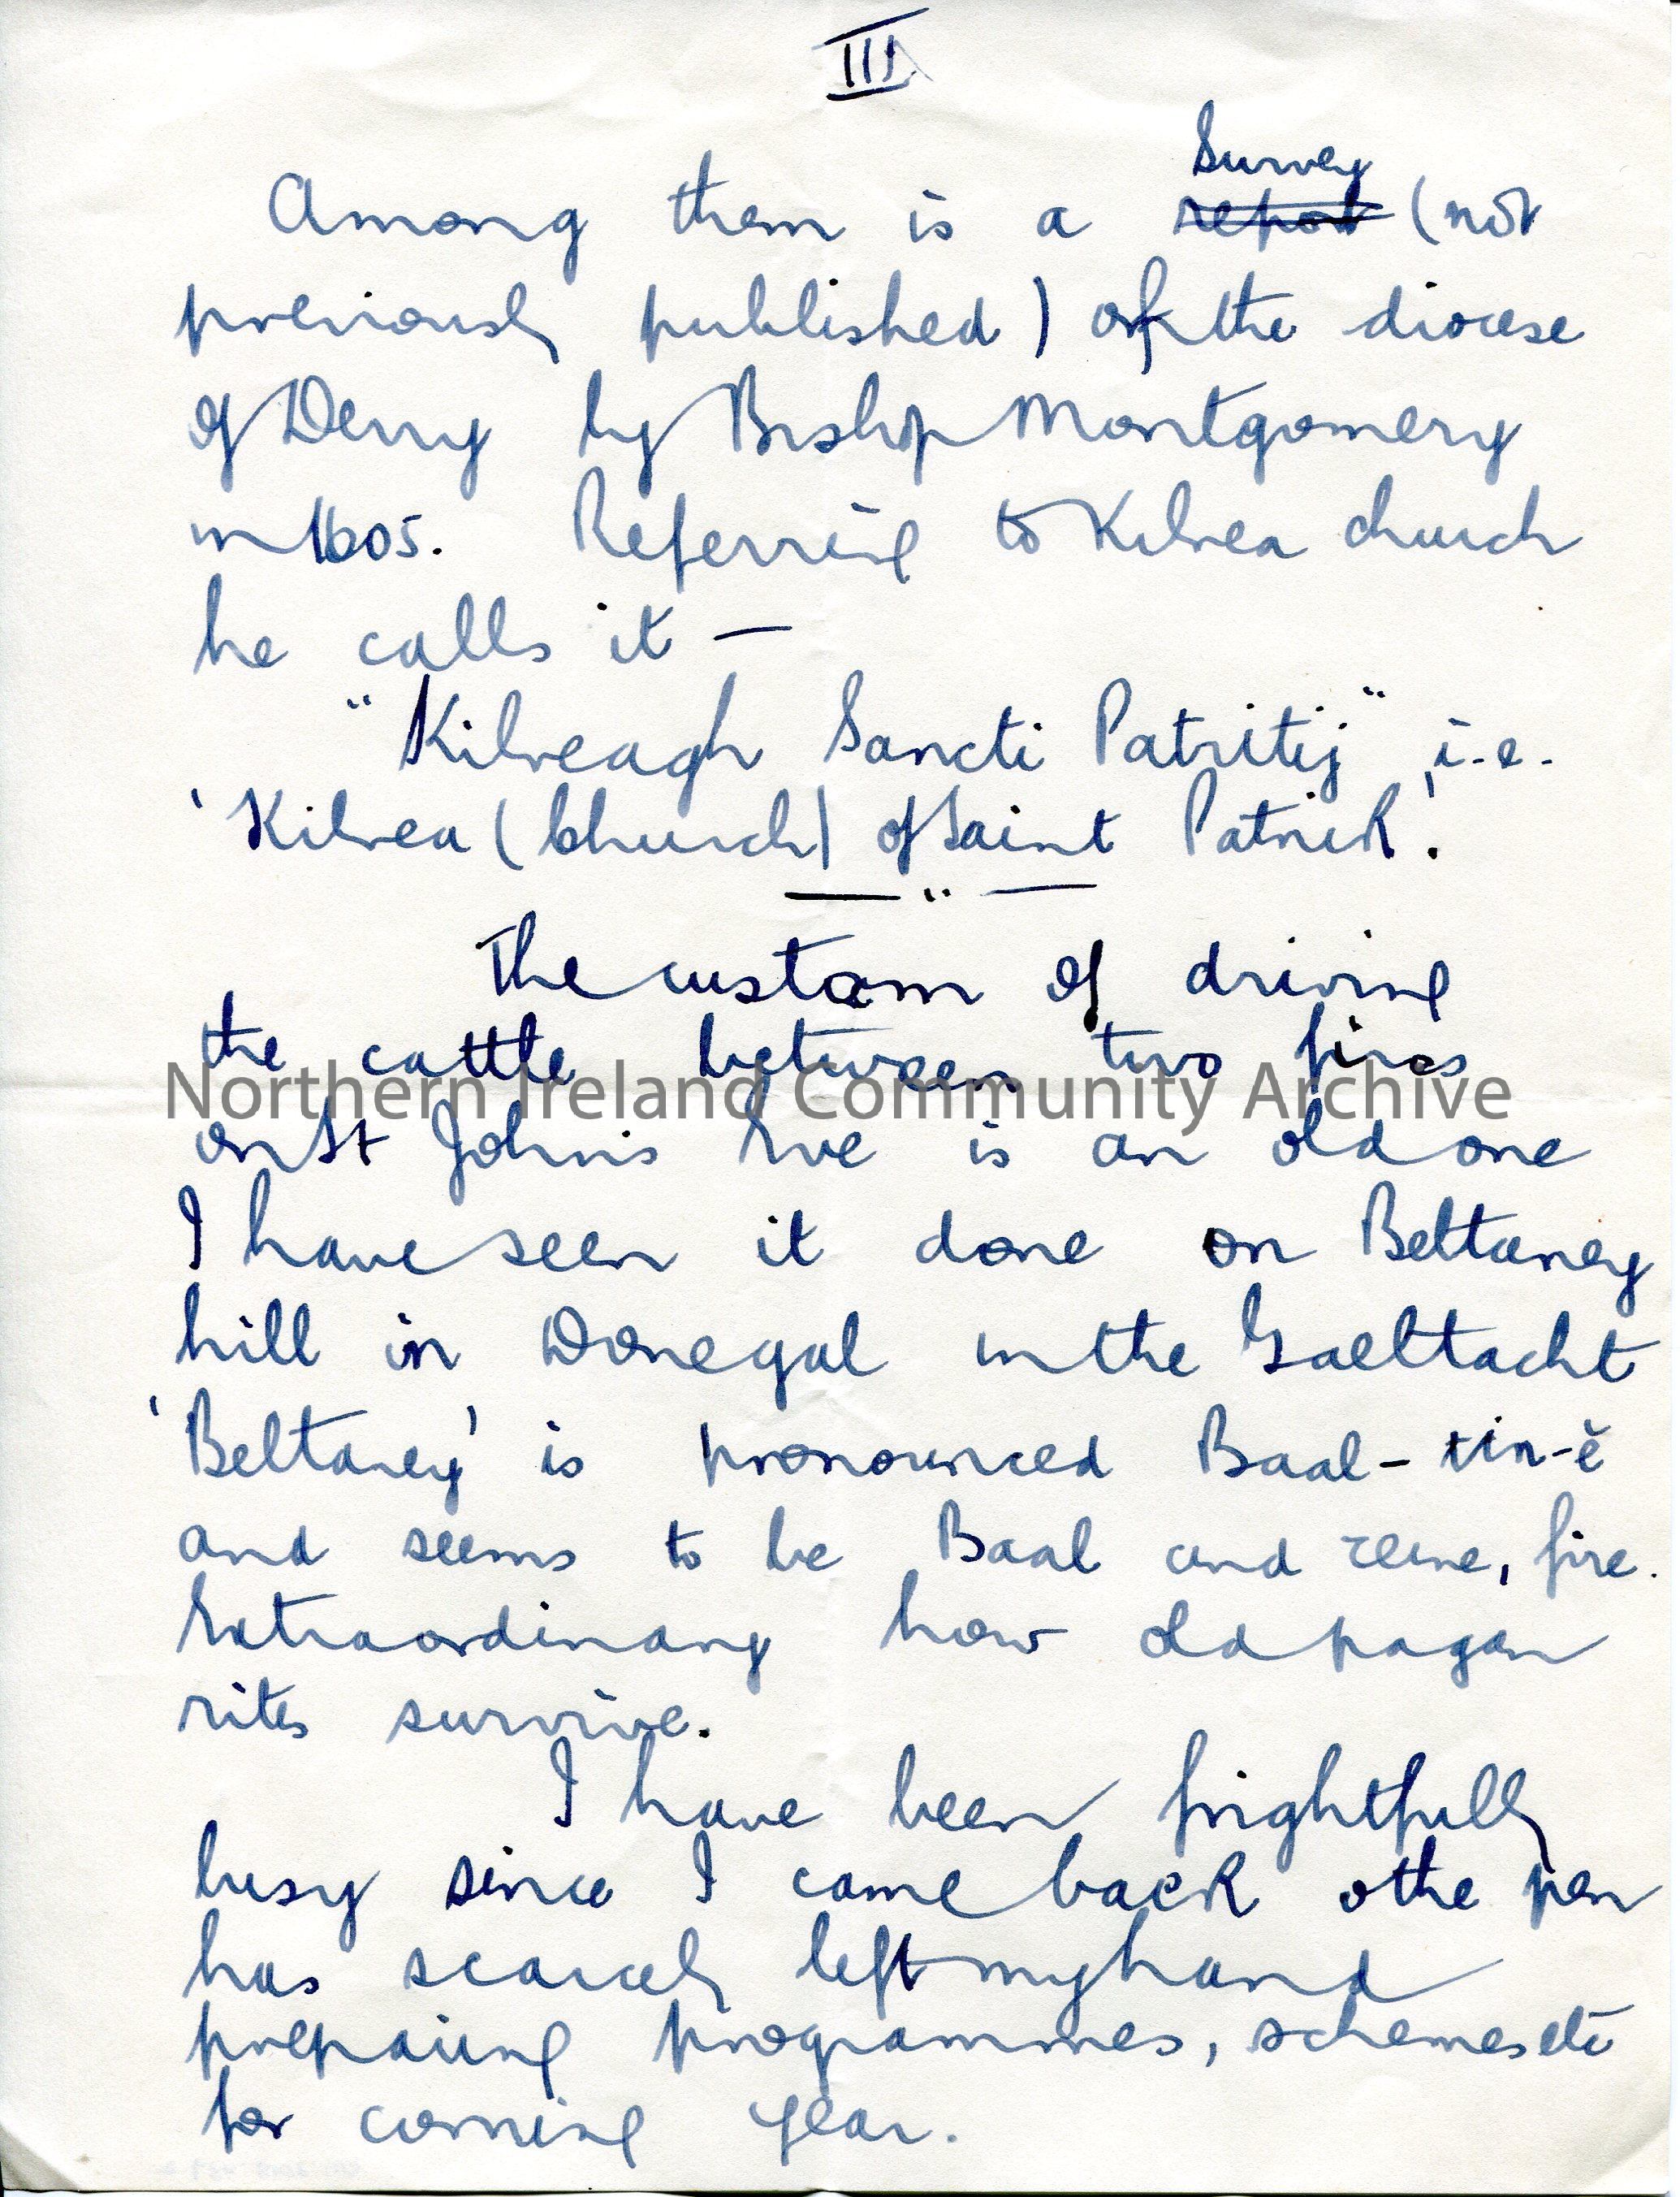 III
Survey
Among them is a report (not
previously published) of the diocese
of Derry by Bishop Montgomery
in 1605. Referring to Kilrea church
he calls it —
"Kilreagh Sancti Patritij", i.e.
'Kilrea (Church) of Saint Patrick'.
The custom of driving
the cattle between two fires
Northern Ireland Community Archive
on St Johns Eve is an old one
I have seen it done on Beltaney
hill in Donegal in the Gaeltacht
'Beltaney' is pronounced Baal-tin-ĕ
and seems to be Baal and teine, fire.
Extraordinary how old pagan
rites survive.
I have been frightfully
busy since I came back & the pen
has scarcely left my hand
preparing programmes, schemes etc
for coming year.